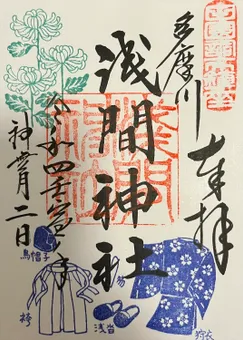 奉拝
多摩川
浅間神社
令和四壬寅年
神無月二日
烏帽子
袴
浅沓
狩衣